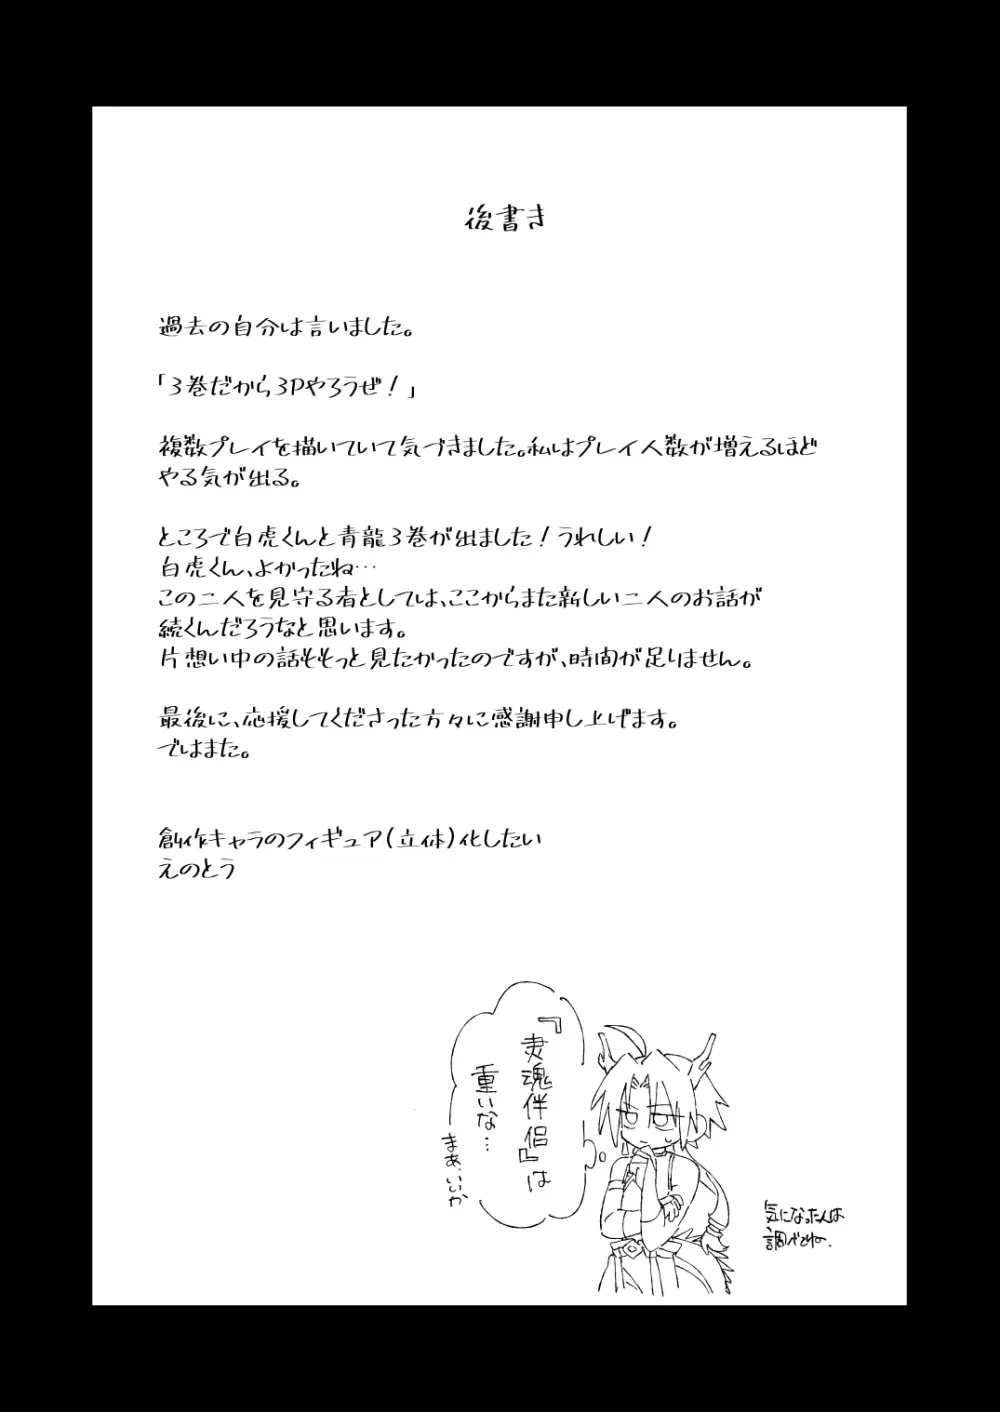 後書き
過去の自分は言いました。
「3巻だから3Pやろうぜ!」
複数プレイを描いていて気づきました。私はプレイ人数が増えるほど
やる気が出る。
ところで白虎くんと青龍3巻が出ました!うれしい!
白虎くん、よかったね…
この二人を見守る者としては、ここからまた新しい二人のお話が
続くんだろうなと思います。
片想い中の話ももっと見たかったのですが、時間が足りません。
最後に、応援してくださった方々に感謝申し上げます。
ではまた。
創作キャラのフィギュア(立体)化したい
えのとう
『灵魂伴侣』は
重いな…
まあ、いいか
気になった人は
調べてね。